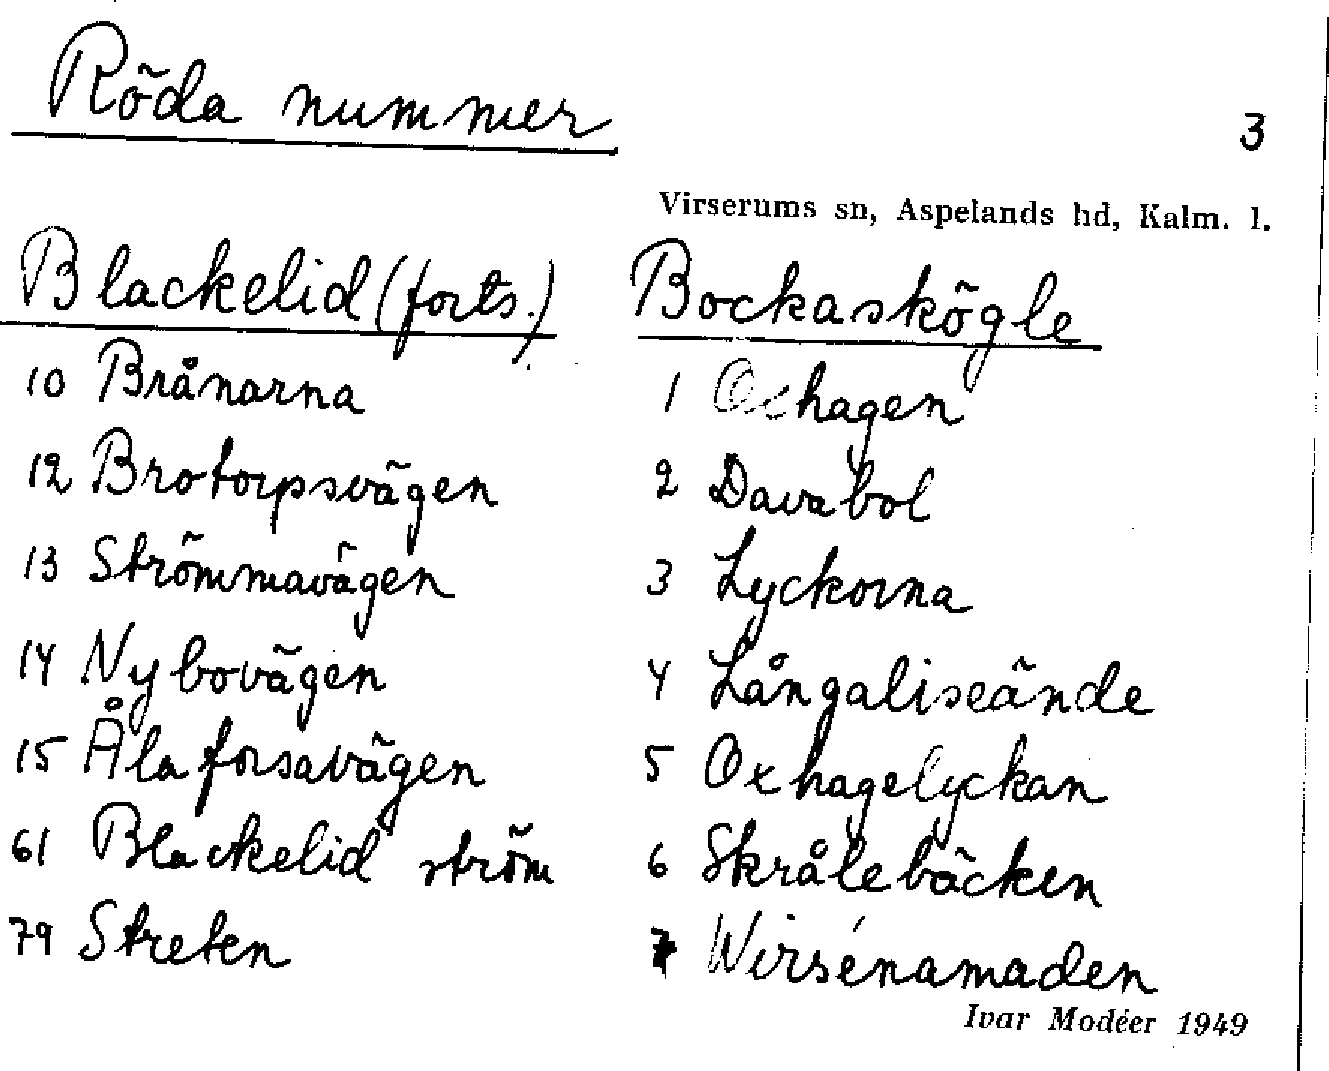 Röda nummer
3
Virserums sn, Aspelands hd, Kalm. l.
Blackelid (forts.)
10 Brånarna
12 Brotorpsvägen
13 Strömmavägen
14 Nybovägen
15 Ålaforsavägen
61 Blackelid ström
79 Streten
Bockaskögle
1 Oxhagen
2 Davabol
3 Lyckorna
4 Långaliseände
5 Oxhagelyckan
6 Skrålebäcken
7 Wirsénamaden
Ivar Modéer 1949